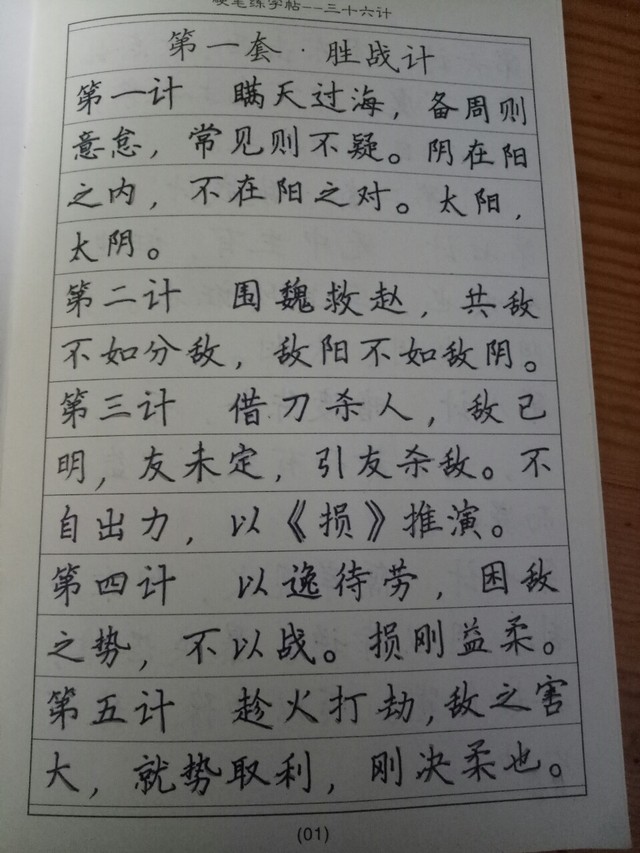 硬笔练字帖--三十六计
第一套·胜战计
第一计 瞒天过海，备周则
意怠，常见则不疑。阴在阳
之内，不在阳之对。太阳，
太阴。
第二计 围魏救赵，共敌
不如分敌，敌阳不如敌阴。
第三计 借刀杀人，敌已
明，友未定，引友杀敌。不
自出力，以《损》推演。
第四计 以逸待劳，困敌
之势，不以战。损刚益柔。
第五计 趁火打劫，敌之害
大，就势取利，刚决柔也。
(01)